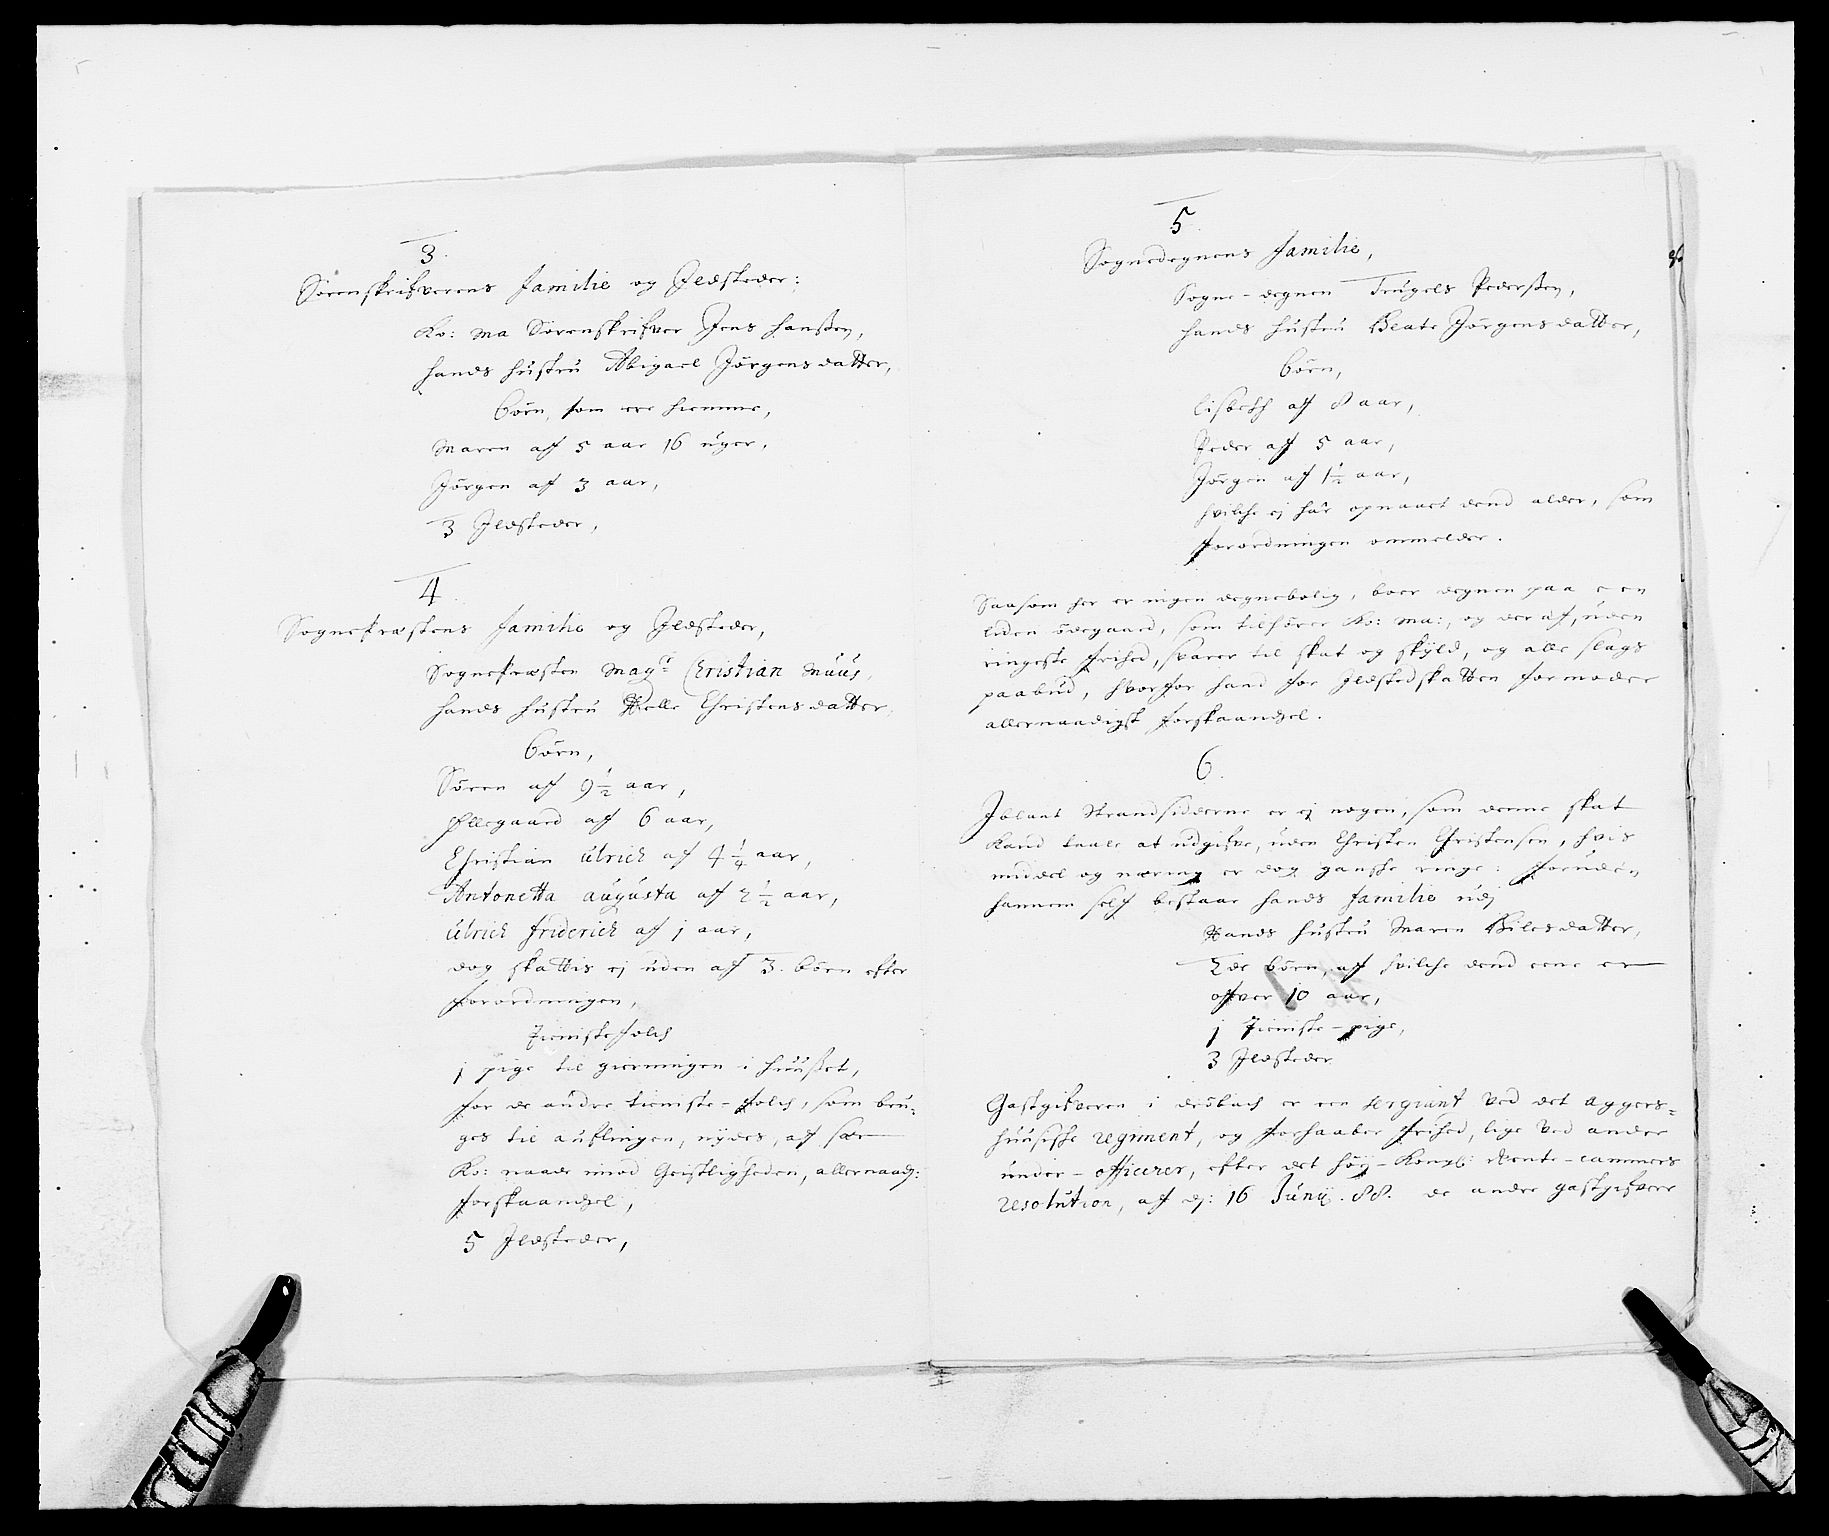 3.
Sörenskrifverens familie og Jldsteder:
Ko: Ma Sörenskrifver Jens Hansen,
hands hustru Abigael Jörgensdatter,
Börn, som ere hiemme,
Maren aff 5 aar 16 uger,
Jörgen aff 3 aar,
3 Jldsteder,
4.
Sognepræstens familie og Jldsteder,
Sognepræsten Magr Christian Muus,
hands hustru Pelle Christensdatter,
Börn,
Sören aff 9 1/2 aar,
Ellegaard aff 6 aar,
Christian Ulrich af 4 1/4 aar,
Antonetta Augusta aff 2 1/2 aar,
Ulrich friderich af 1 aar,
dog skattis ej uden aff 3. börn efter
forordningen,
Tienistefolch
1 pige til gierningen i huuset,
for de andre tieniste-folch, som bru-
ges til auflingen, nydes, af sær
Ko: naade imod Geistligheden, allernaad:
forskaansel,
5 Jldsteder,
5.
Sognedegnens familie,
Sogne-degnen Trugels Pedersen,
hands hustru Beate Jörgensdatter,
börn,
Lisbeth aff 8 aar,
Peder aff 5 aar,
Jörgen af 1 1/2 aar,
hvilche ej har opnaaet dend alder, som
forordningen ommelder.
Saasom her er ingen degnebolig, boer degnen paa een
liden ödegaard, som tilhörer Ko: Ma:, og der af, uden
ringeste frihed, svarer til skat og skyld, og alle slags
paabud, hvorfor hand for Jldstedskatten formoder
allernaadigst forskaansel.
6.
Jblant Strandsidderne er ej nogen, som denne skat
kand taale at udgifve, uden Christen Christensen, hvis
middel og næring er dog ganske ringe: foruden
hannem self bestaar hands familie udj
Hands hustru Maren Nilesdatter,
2de börn, aff hvilche dend eene er
ofver 10 aar,
1 Tieniste-pige,
3 Jldsteder
Gastgifveren i dröbach er een sergiant ved det Aggers-
huusiske regiment, og forhaaber frihed, lige ved andre
under-officerer, efter det höy-Kongl: Rente-cammers
resolution, af d: 16 Junij. 88. de andre gastgifvere